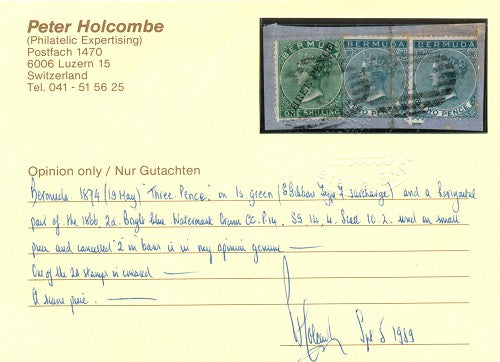 Peter Holcombe
(Philatelic Expertising)
Postfach 1470
6006 Luzern 15
Switzerland
Tel. 041 - 51 56 25
BERMUDA
ONE SHILLING
BERMUDA
TWO PENCE
BERMUDA
TWO PENCE
Opinion only / Nur Gutachten
Bermuda 1874 (19 May) "Three Pence" on 1s green (Gibbons Type 7 surcharge) and a horizontal
pair of the 1866 2d. Bright blue Watermark Crown CC P.14. SG 14, 4. Scott 10, 2. used on small
piece and cancelled "2" in bars is in my opinion genuine
One of the 2d stamps is creased
A scarce piece.
Holcombe Sept 5 1989